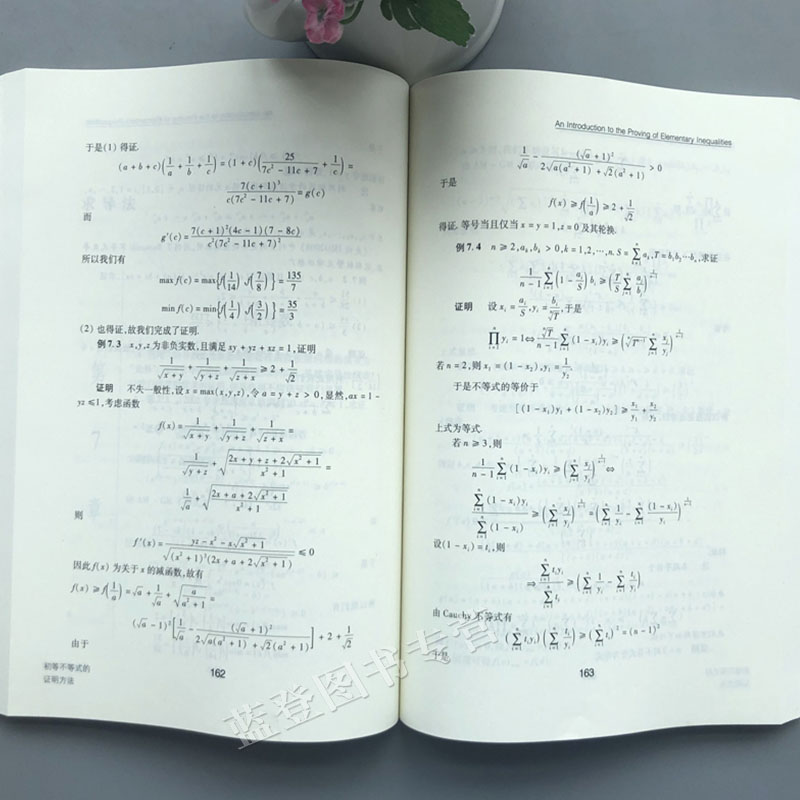 于是(1) 得证.
(a + b + c)(1/a + 1/b + 1/c) = (1 + c)(25/(7c² − 11c + 7) + 1/c) =
7(c + 1)³/(c(7c² − 11c + 7)) = g(c)
而
g′(c) = 7(c + 1)²(4c − 1)(7 − 8c)/(c²(7c² − 11c + 7)²)
所以我们有
max f(c) = max{f(1/14), f(7/8)} = 135/7
min f(c) = min{f(1/4), f(3/2)} = 35/3
(2) 也得证,故我们完成了证明.
例 7.3 x,y,z 为非负实数,且满足 xy + yz + xz = 1,证明
1/√(x + y) + 1/√(y + z) + 1/√(z + x) ≥ 2 + 1/√2
证明 不失一般性,设 x = max{x,y,z},令 a = y + z > 0,显然,ax = 1 −
yz ≤ 1,考虑函数
f(x) = 1/√(x + y) + 1/√(y + z) + 1/√(z + x) =
1/√(y + z) + √((2x + y + z + 2√(x² + 1))/(x² + 1)) =
1/√a + √((2x + a + 2√(x² + 1))/(x² + 1))
则
f′(x) = (yz − x² − x√(x² + 1))/√((x² + 1)³(2x + a + 2√(x² + 1))) ≤ 0
因此 f(x) 为关于 x 的减函数,故有
f(x) ≥ f(1/a) = √a + 1/√a + √(a/(a² + 1)) =
(√a − 1)²[1/√a − (√a + 1)²/(2√(a(a² + 1)) + √2(a² + 1))] + 2 + 1/√2
由于
初等不等式的
证明方法
162
An Introduction to the Proving of Elementary Inequalities
1/√a − (√a + 1)²/(2√(a(a² + 1)) + √2(a² + 1)) > 0
于是
f(x) ≥ f(1/a) ≥ 2 + 1/√2
得证. 等号当且仅当 x = y = 1,z = 0 及其轮换.
例 7.4 n ≥ 2,aₖ,bₖ > 0,k = 1,2,⋯,n. S = ∑aᵢ,T = b₁b₂⋯bₙ,求证
1/(n − 1) ∑(1 − aᵢ/S)bᵢ ≥ (T/S ∑ aᵢ/bᵢ)
证明 设 xᵢ = aᵢ/S,yᵢ = bᵢ/ⁿ√T,于是
∏yᵢ = 1 ⇔ ⁿ√T/(n − 1) ∑(1 − xᵢ)yᵢ ≥ (∑ xᵢ/yᵢ)
若 n = 2,则 x₁ = (1 − x₂),y₁ = 1/y₂.
于是不等式的等价于
[(1 − x₁)y₁ + (1 − x₂)y₂] ≥ x₁/y₁ + x₂/y₂
上式为等式.
若 n ≥ 3,则
1/(n − 1) ∑(1 − xᵢ)yᵢ ≥ (∑ xᵢ/yᵢ) ⇔
∑(1 − xᵢ)yᵢ/∑(1 − xᵢ) ≥ (∑ xᵢ/yᵢ) = (∑ 1/yᵢ − ∑ (1 − xᵢ)/yᵢ)
设(1 − xᵢ) = tᵢ,则
⇒ ∑tᵢyᵢ/∑tᵢ ≥ (∑ 1/yᵢ − ∑ tᵢ/yᵢ)
由 Cauchy 不等式有
(∑tᵢyᵢ)(∑ tᵢ/yᵢ) ≥ (∑tᵢ)² = (n − 1)²
于是
163
蓝登图书专营